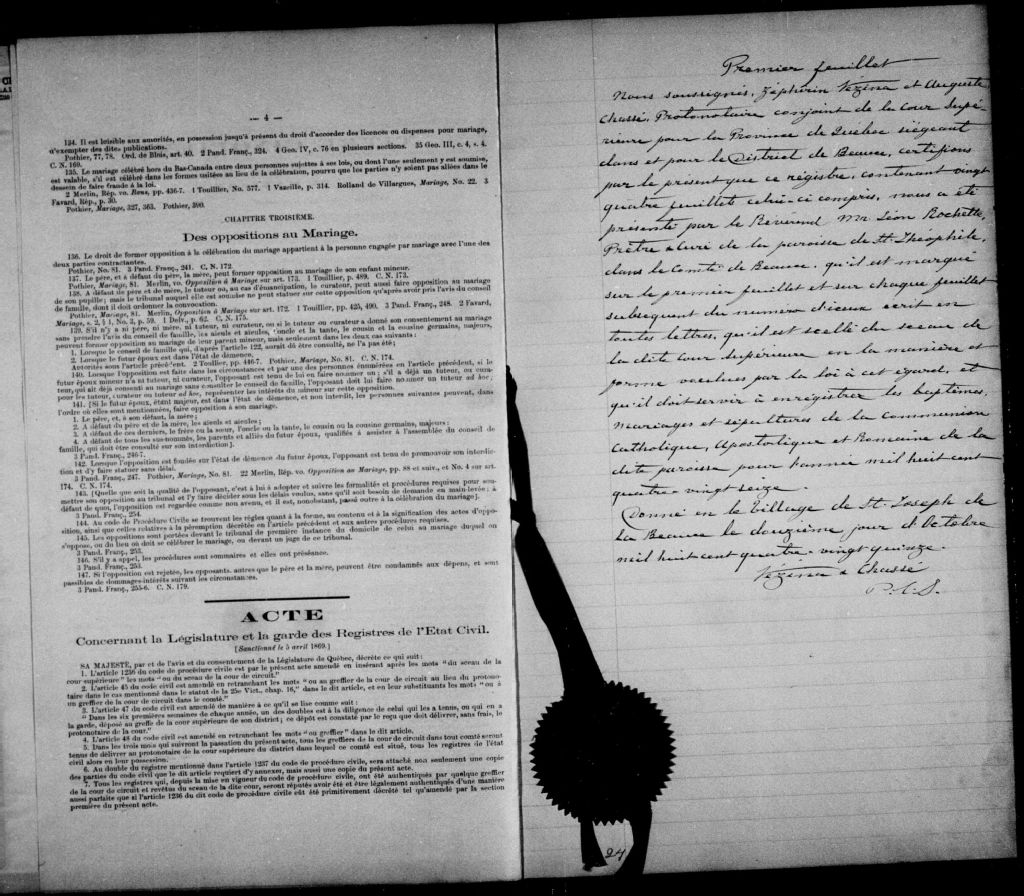 — 4 —
134. Il est loisible aux autorités, en possession jusqu'à présent du droit d'accorder des licences ou dispenses pour mariage,
d'exempter des dites publications.
Pothier, 77, 78. Ord. de Blois, art. 40. 2 Pand. Franç., 324. 4 Geo. IV, c. 76 en plusieurs sections. 35 Geo. III, c. 4, s. 4.
C. N. 169.
135. Le mariage célébré hors du Bas-Canada entre deux personnes sujettes à ses lois, ou dont l'une seulement y est soumise,
est valable, s'il est célébré dans les formes usitées au lieu de la célébration, pourvu que les parties n'y soient pas allées dans le
dessein de faire fraude à la loi.
2 Merlin, Rép. vo. Bans, pp. 436-7. 1 Toullier, No. 577. 1 Vazeille, p. 314. Rolland de Villargues, Mariage, No. 22. 3
Favard, Rép., p. 30.
Pothier, Mariage, 327, 363. Pothier, 390.
CHAPITRE TROISIÈME.
Des oppositions au Mariage.
136. Le droit de former opposition à la célébration du mariage appartient à la personne engagée par mariage avec l'une des
deux parties contractantes.
Pothier, No. 81. 3 Pand. Franç., 241. C. N. 172.
137. Le père, et à défaut du père, la mère, peut former opposition au mariage de son enfant mineur.
Pothier, Mariage, 81. Merlin, vo. Opposition à Mariage sur art. 173. 1 Toullier, p. 489. C. N. 173.
138. A défaut de père et de mère, le tuteur ou, au cas d'émancipation, le curateur, peut aussi faire opposition au mariage
de son pupille; mais le tribunal auquel elle est soumise ne peut statuer sur cette opposition qu'après avoir pris l'avis du conseil
de famille, dont il doit ordonner la convocation.
Pothier, Mariage, 81. Merlin, Opposition à Mariage sur art. 172. 1 Toullier, pp. 425, 490. 3 Pand. Franç., 248. 2 Favard,
Mariage, s. 2, § 1, No. 3, p. 59. 1 Delv., p. 62. C. N. 175.
139. S'il n'y a ni père, ni mère, ni tuteur, ni curateur, ou si le tuteur ou curateur a donné son consentement au mariage
sans prendre l'avis du conseil de famille, les aïeuls et aïeules, l'oncle et la tante, le cousin et la cousine germains, majeurs,
peuvent former opposition au mariage de leur parent mineur, mais seulement dans les deux cas suivants :
1. Lorsque le conseil de famille qui, d'après l'article 122, aurait dû être consulté, ne l'a pas été;
2. Lorsque le futur époux est dans l'état de démence.
Autorités sous l'article précédent. 2 Toullier, pp. 446-7. Pothier, Mariage, No. 81. C. N. 174.
140. Lorsque l'opposition est faite dans les circonstances et par une des personnes énumérées en l'article précédent, si le
futur époux mineur n'a ni tuteur, ni curateur, l'opposant est tenu de lui en faire nommer un; s'il a déjà un tuteur, ou cura-
teur, qui ait déjà consenti au mariage sans consulter le conseil de famille, l'opposant doit lui faire nommer un tuteur ad hoc;
pour les tuteur, curateur ou tuteur ad hoc, représenter les intérêts du mineur sur cette opposition.
141. [Si le futur époux, étant majeur, est dans l'état de démence, et non interdit, les personnes suivantes peuvent, dans
l'ordre où elles sont mentionnées, faire opposition à son mariage.
1. Le père, et, à son défaut, la mère;
2. A défaut du père et de la mère, les aïeuls et aïeules;
3. A défaut de ces derniers, le frère ou la sœur, l'oncle ou la tante, le cousin ou la cousine germains, majeurs;
4. A défaut de tous les sus-nommés, les parents et alliés du futur époux, qualifiés à assister à l'assemblée du conseil de
famille, qui doit être consulté sur son interdiction].
3 Pand. Franç., 246-7.
142. Lorsque l'opposition est fondée sur l'état de démence du futur époux, l'opposant est tenu de promouvoir son interdic-
tion et d'y faire statuer sans délai.
3 Pand. Franç., 247. Pothier, Mariage, No. 81. 22 Merlin, Rép. vo. Opposition au Mariage, pp. 88 et suiv., et No. 4 sur art.
174. C. N. 174.
143. [Quelle que soit la qualité de l'opposant, c'est à lui à adopter et suivre les formalités et procédures requises pour sou-
mettre son opposition au tribunal et l'y faire décider sous les délais voulus, sans qu'il soit besoin de demande en main-levée; à
défaut de quoi, l'opposition est regardée comme non avenue, et il est, nonobstant, passé outre à la célébration du mariage].
3 Pand. Franç., 254.
144. Au code de Procédure Civile se trouvent les règles quant à la forme, au contenu et à la signification des actes d'oppo-
sition, ainsi que celles relatives à la péremption décrétée en l'article précédent et aux autres procédures requises.
145. Les oppositions sont portées devant le tribunal de première instance du domicile de celui au mariage duquel on
s'oppose, ou du lieu où doit se célébrer le mariage, ou devant un juge de ce tribunal.
3 Pand. Franç., 253.
146. S'il y a appel, les procédures sont sommaires et elles ont préséance.
3 Pand. Franç., 253.
147. Si l'opposition est rejetée, les opposants, autres que le père et la mère, peuvent être condamnés aux dépens, et sont
passibles de dommages-intérêts suivant les circonstances.
3 Pand. Franç., 255-6. C. N. 179.
ACTE
Concernant la Législature et la garde des Registres de l'Etat Civil.
[Sanctionné le 5 avril 1869.]
SA MAJESTÉ, par et de l'avis et du consentement de la Législature de Québec, décrète ce qui suit :
1. L'article 1236 du code de procédure civile est par le présent acte amendé en insérant après les mots "du sceau de la
cour supérieure" les mots "ou du sceau de la cour de circuit."
2. L'article 45 du code civil est amendé en retranchant les mots "ou au greffier de la cour de circuit au lieu du protono-
taire dans le cas mentionné dans le statut de la 25e Vict., chap. 16," dans le dit article, et en leur substituant les mots "ou à
un greffier de la cour de circuit dans le comté."
3. L'article 47 du code civil est amendé de manière à ce qu'il se lise comme suit :
" Dans les six premières semaines de chaque année, un des doubles est à la diligence de celui qui les a tenus, ou qui en a
la garde, déposé au greffe de la cour supérieure de son district; ce dépôt est constaté par le reçu que doit délivrer, sans frais, le
protonotaire de la cour."
4. L'article 48 du code civil est amendé en retranchant les mots "ou greffier" dans le dit article.
5. Dans les trois mois qui suivront la passation du présent acte, tous les greffiers de la cour de circuit dans tout comté seront
tenus de délivrer au protonotaire de la cour supérieure du district dans lequel ce comté est situé, tous les registres de l'état
civil alors en leur possession.
6. Au double du registre mentionné dans l'article 1237 du code de procédure civile, sera attaché non seulement une copie
des parties du code civil que le dit article requiert d'y annexer, mais aussi une copie du présent acte.
7. Tous les registres qui, depuis la mise en vigueur du code de procédure civile, ont été authentiqués par quelque greffier
de la cour de circuit et revêtus du sceau de la dite cour, seront réputés avoir été et être légalement authentiqués d'une manière
aussi parfaite que si l'article 1236 du dit code de procédure civile eût été primitivement décrété tel qu'amendé par la section
première du présent acte.
Premier feuillet
Nous soussignés, Zéphirin Vézina et Auguste
Chassé, Protonotaire conjoint de la Cour Supé-
rieure pour la Province de Québec siégeant
dans et pour le District de Beauce, certifions
par le présent que ce régistre, contenant vingt
quatre feuillets celui-ci compris, nous a été
présenté par le Révérend Mr Léon Rochette,
Prêtre & Curé de la paroisse de St. Théophile,
dans le Comté de Beauce, qu'il est marqué
sur le premier feuillet et sur chaque feuillet
subséquent du numéro d'iceux écrit en
toutes lettres, qu'il est scellé du sceau de
la dite Cour Supérieure en la manière et
forme voulues par la loi à cet égard, et
qu'il doit servir à enregistrer les baptêmes,
mariages et sépultures de la Communion
Catholique, Apostolique et Romaine de la
dite paroisse pour l'année mil huit cent
quatre-vingt seize.
Donné en le Village de St. Joseph de
la Beauce le douzième jour d'Octobre
mil huit cent quatre-vingt quinze.
Vézina & Chassé
P.C.S.
24